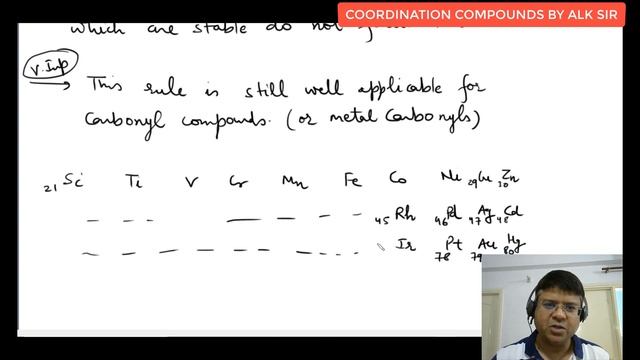 COORDINATION COMPOUNDS BY ALK SIR
which are stable do not
V. Imp
This rule is still well applicable for
Carbonyl compounds. (or metal Carbonyls)
21 Sc Ti V Cr Mn Fe Co Ni 29 Cu 30 Zn
45 Rh 46 Pd 47 Ag 48 Cd
Ir 78 Pt 79 Au 80 Hg